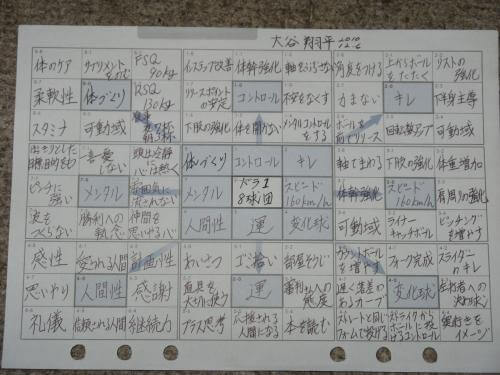 大谷 翔平 2010 12.6
体のケア
サプリメントをのむ
FSQ
90kg
インステップ改善
体幹強化
軸をぶらさない
角度をつける
上からボール
をたたく
リストの
強化
柔軟性
体づくり
RSQ
130kg
リリースポイント
の安定
コントロール
不安をなくす
力まない
キレ
下半身主導
スタミナ
可動域
食事
夜7杯
朝3杯
下肢の強化
体を開かない
メンタルコントロール
をする
ボールを
前でリリース
回転数アップ
可動域
はっきりとした
目標、目的をもつ
一喜一憂
しない
頭は冷静に
心は熱く
体づくり
コントロール
キレ
軸でまわる
下肢の強化
体重増加
ピンチに
強い
メンタル
雰囲気に
流されない
メンタル
ドラ1
8球団
スピード
160km/h
体幹強化
スピード
160km/h
肩周りの強化
波を
つくらない
勝利への
執念
仲間を
思いやる心
人間性
運
変化球
可動域
ライナー
キャッチボール
ピッチング
を増やす
感性
愛される人間
計画性
あいさつ
ゴミ拾い
部屋そうじ
カウントボール
を増やす
フォーク完成
スライダー
のキレ
思いやり
人間性
感謝
道具を
大切に使う
運
審判さんへ
の態度
遅く落差の
あるカーブ
変化球
左打者への
決め球
礼儀
信頼される人間
継続力
プラス思考
応援される
人間になる
本を読む
ストレートと同じ
フォームで投げる
ストライクから
ボールに投げ
るコントロール
奥行きを
イメージ